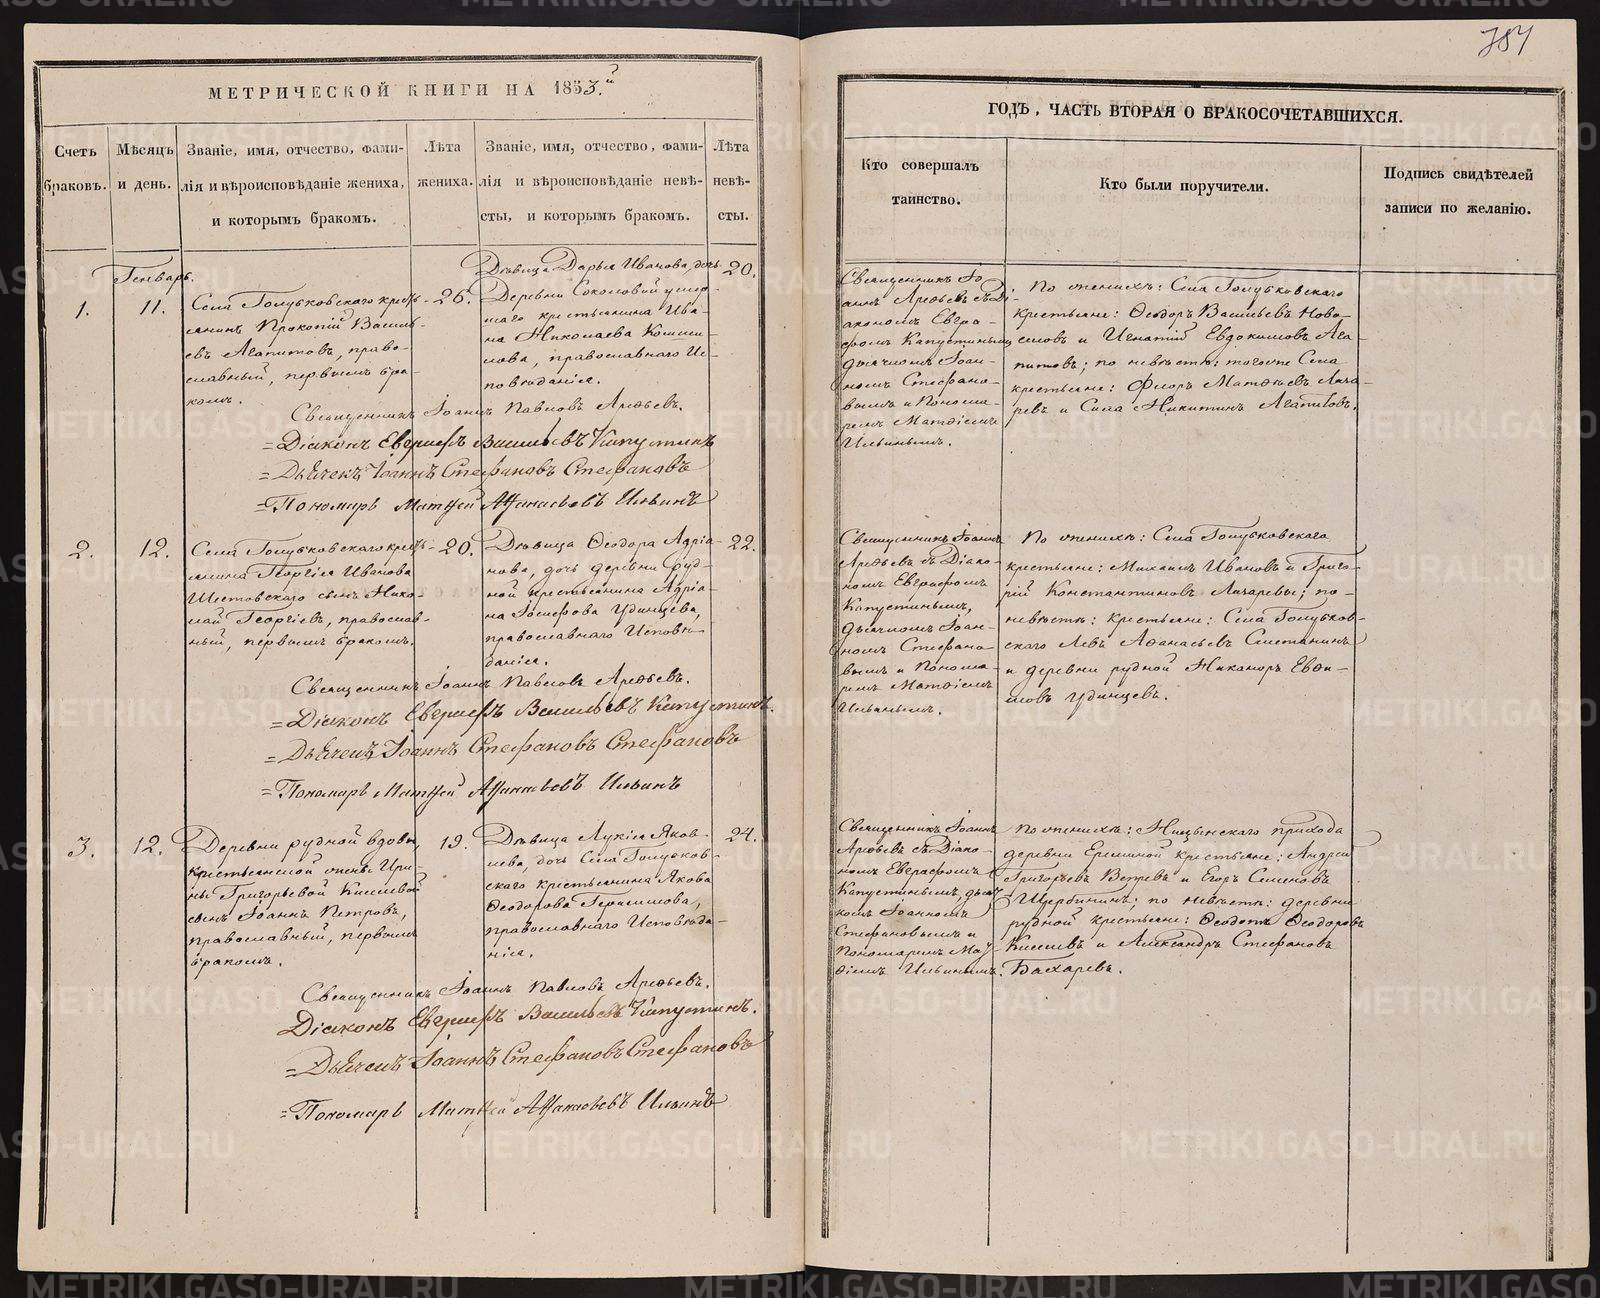 МЕТРИЧЕСКОЙ КНИГИ НА 1853.й
Счетъ браковъ.
Мѣсяцъ и день.
Званіе, имя, отчество, фами-
лія и вѣроисповѣданіе жениха,
и которымъ бракомъ.
Лѣта
жениха.
Званіе, имя, отчество, фами-
лія и вѣроисповѣданіе невѣ-
сты, и которымъ бракомъ.
Лѣта
невѣ-
сты.
Генварь.
1.
11.
Села Голубковскаго кресть-
янинъ Прокопій Василь-
евъ Агапитовъ, право-
славный, первымъ бра-
комъ.
26.
Дѣвица Дарья Иванова, дочь
Деревни Соколовой умер-
шаго крестьянина Ива-
на Николаева
православнаго Ис-
повѣданія.
20.
Священникъ Іоаннъ Павловъ Арефьевъ.
=Діаконъ Евграфъ Васильевъ Капустинъ
=Дьячекъ Іоаннъ Стефановъ Стефановъ
=Пономарь Матѳей Аѳанасьевъ Ильинъ
2.
12.
Села Голубковскаго кресть-
янина Георгія Иванова
Шестовскаго сынъ Нико-
лай Георгіевъ, православ-
ный, первымъ бракомъ.
20.
Дѣвица Ѳеодора Адріа-
нова, дочь деревни Руд-
ной крестьянина Адріа-
на Іосифова Удинцева,
православнаго Исповѣ-
данія.
22.
Священникъ Іоаннъ Павловъ Арефьевъ.
=Діаконъ Евграфъ Васильевъ Капустинъ.
=Дьячекъ Іоаннъ Стефановъ Стефановъ
=Пономарь Матѳей Аѳанасьевъ Ильинъ
3.
12.
Деревни рудной вдовы,
крестьянской жены Ири-
ны Григорьевой Киселевой
сынъ Іоаннъ Петровъ,
православный, первымъ
бракомъ.
19.
Дѣвица Лукія Яков-
лева, дочь Села Голубков-
скаго крестьянина Якова
Ѳеодорова Герасимова,
православнаго Исповѣда-
нія.
24.
Священникъ Іоаннъ Павловъ Арефьевъ.
Діаконъ Евграфъ Васильевъ Капустинъ.
=Дьячекъ Іоаннъ Стефановъ Стефановъ
=Пономарь Матѳей Аѳанасьевъ Ильинъ
787
ГОДЪ, ЧАСТЬ ВТОРАЯ О БРАКОСОЧЕТАВШИХСЯ.
Кто совершалъ
таинство.
Кто были поручители.
Подпись свидѣтелей
записи по желанію.
Священникъ Іо-
аннъ Арефьевъ съ Ді-
акономъ Евгра-
фомъ Капустинымъ,
дьячкомъ Іоан-
номъ Стефано-
вымъ и Понома-
ремъ Матѳіемъ
Ильинымъ.
По женихѣ: Села Голубковскаго
крестьяне: Ѳеодоръ Васильевъ Ново-
селовъ и Игнатій Евдокимовъ Ага-
питовъ; по невѣстѣ: тогоже Села
крестьяне: Флоръ Матѳѣевъ Лиха-
ревъ и Сила Никитинъ Агапитовъ.
Священникъ Іоаннъ
Арефьевъ съ Діако-
номъ Евграфомъ
Капустинымъ,
дьячкомъ Іоан-
номъ Стефано-
вымъ и Понома-
ремъ Матѳіемъ
Ильинымъ.
По женихѣ: Села Голубковскаго
крестьяне: Михаилъ Ивановъ и Григо-
рій Константиновъ Лихаревы; по-
невѣстѣ: крестьяне: Села Голубков-
скаго Левъ Афанасьевъ Сметанинъ
и деревни рудной Никаноръ Евѳи-
мовъ Удинцевъ.
Священникъ Іоаннъ
Арефьевъ съ Діако-
номъ Евграфомъ
Капустинымъ, дьяч-
комъ Іоанномъ
Стефановымъ и
Пономаремъ Мат-
ѳіемъ Ильинымъ.
По женихѣ: Ницынскаго прихода
деревни Ереминой крестьяне: Андрей
Григорьевъ и Егоръ Семеновъ
Щербининъ; по невѣстѣ: деревни
рудной крестьяне: Ѳеодотъ Ѳеодоровъ
Киселевъ и Александръ Стефановъ
Бахаревъ.
METRIKI.GASO-URAL.RU